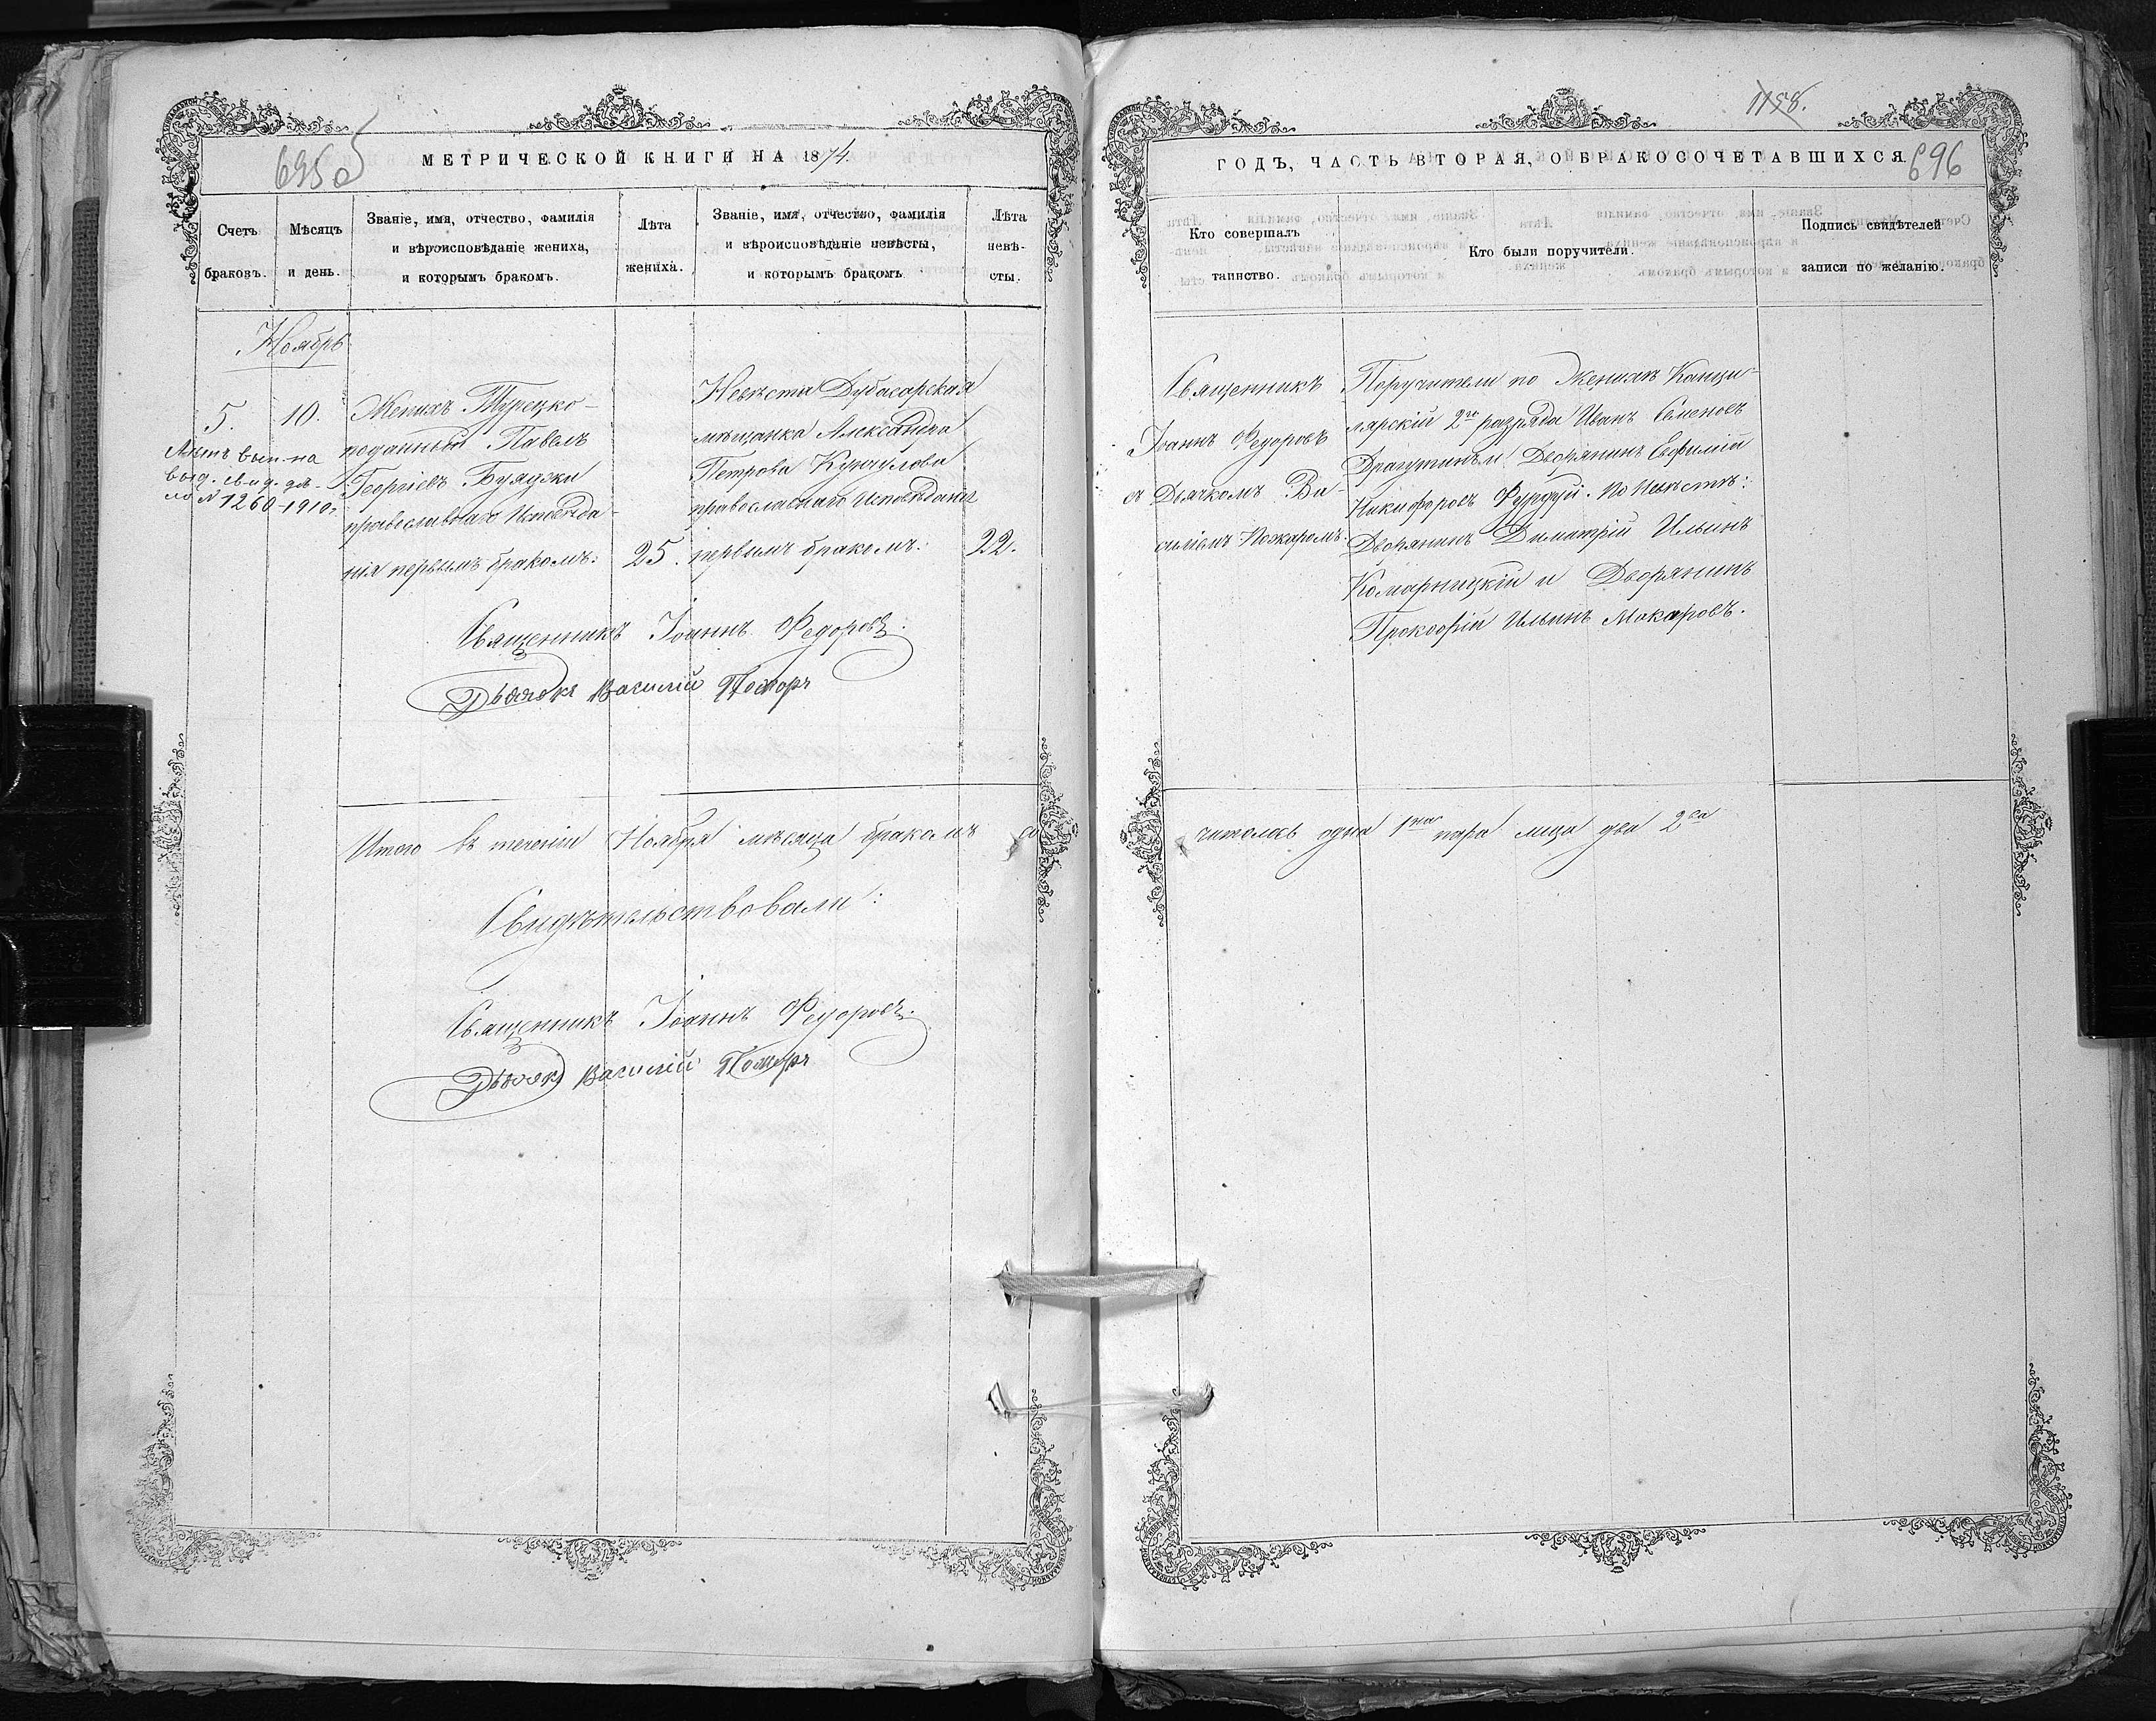 695 об
МЕТРИЧЕСКОЙ КНИГИ НА 1874
Счетъ
браковъ.
Мѣсяцъ
и день.
Званіе, имя, отчество, фамилія
и вѣроисповѣданіе жениха,
и которымъ бракомъ.
Лѣта
жениха.
Званіе, имя, отчество, фамилія
и вѣроисповѣданіе невѣсты,
и которымъ бракомъ
Лѣта
невѣ-
сты.
Ноябрь
5.
10.
вып. на
выд. свид. дѣ-
ло № 1260-1910 г.
Женихъ Турецко-
поданный Павелъ
Георгіевъ
православнаго Исповѣда-
нія первымъ бракомъ:
25.
Невѣста Дубасарская
мѣщанка Александра
Петрова
православнаго Исповѣданія
первымъ бракомъ:
22.
Священникъ Іоаннъ Федоровъ.
Дьячокъ Василій
Итого въ теченіи Ноября мѣсяца бракомъ со
Свидѣтельствовали:
Священникъ Іоаннъ Федоровъ.
Дьячокъ Василій
1158.
ГОДЪ, ЧАСТЬ ВТОРАЯ, О БРАКОСОЧЕТАВШИХСЯ
696
Кто совершалъ
таинство.
Кто были поручители.
Подпись свидѣтелей
записи по желанію.
Священникъ
Іоаннъ Федоровъ
съ Дьячкомъ Ва-
силіемъ
Поручители по Женихѣ Канце-
лярскій 2го разряда Иванъ Семеновъ
и Дворянинъ Евфимій
Никифоровъ Фурдуй. По Невѣстѣ:
Дворянинъ Димитрій Ильинъ
Комарницкій и Дворянинъ
Прокофій Ильинъ Макаровъ.
читолась одна 1на пара лица два 2ва